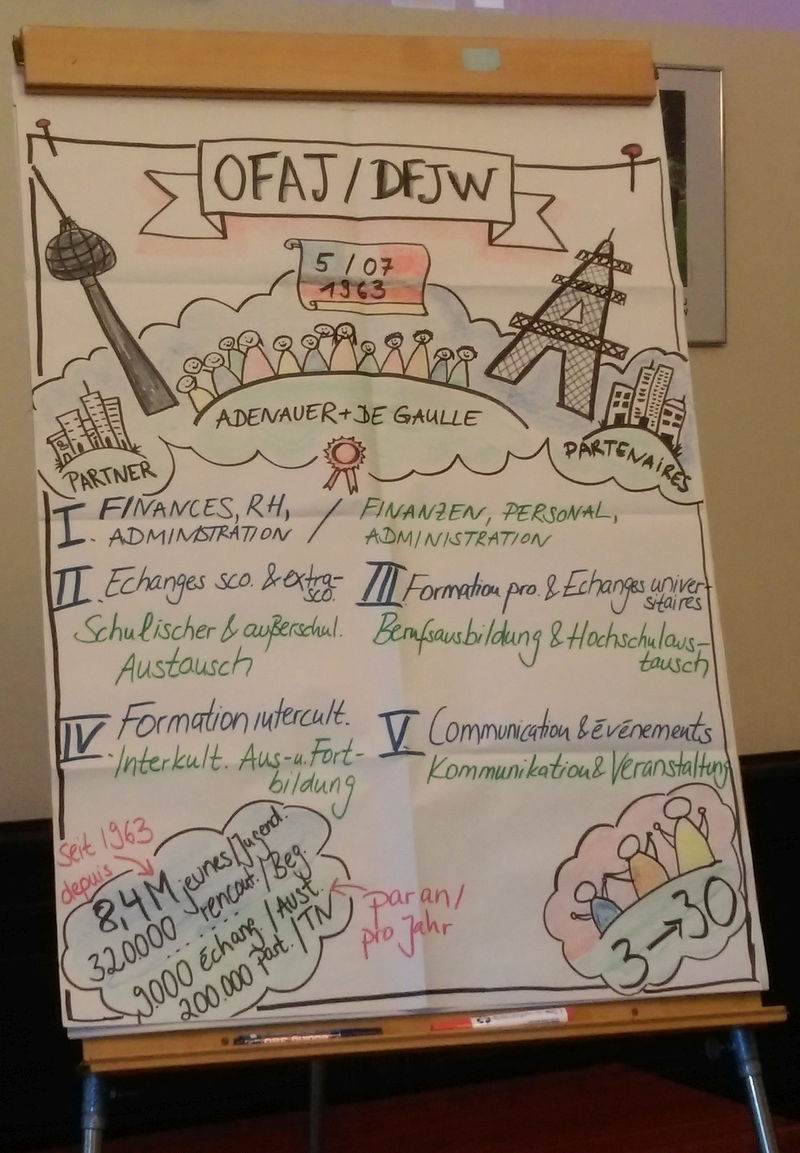 OFAJ / DFJW
5 / 07
1963
ADENAUER + DE GAULLE
PARTNER
PARTENAIRES
I. FINANCES, RH, / FINANZEN, PERSONAL,
ADMINISTRATION ADMINISTRATION
II. Echanges sco. & extra-
sco.
Schulischer & außerschul.
Austausch
III. Formation pro. & Echanges univer-
sitaires
Berufsausbildung & Hochschulaus-
tausch
IV Formation intercult.
Interkult. Aus- u. Fort-
bildung
V. Communication & événements
Kommunikation & Veranstaltung
Seit 1963
depuis
8,4 M jeunes / Jugend.
320.000 rencont. / Beg.
9.000 échang. / Aust.
200.000 part. / TN
par an /
pro Jahr
3 → 30